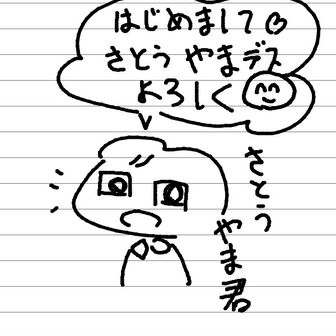 はじめまして
さとう やまデス
よろしく
さとう
やま君